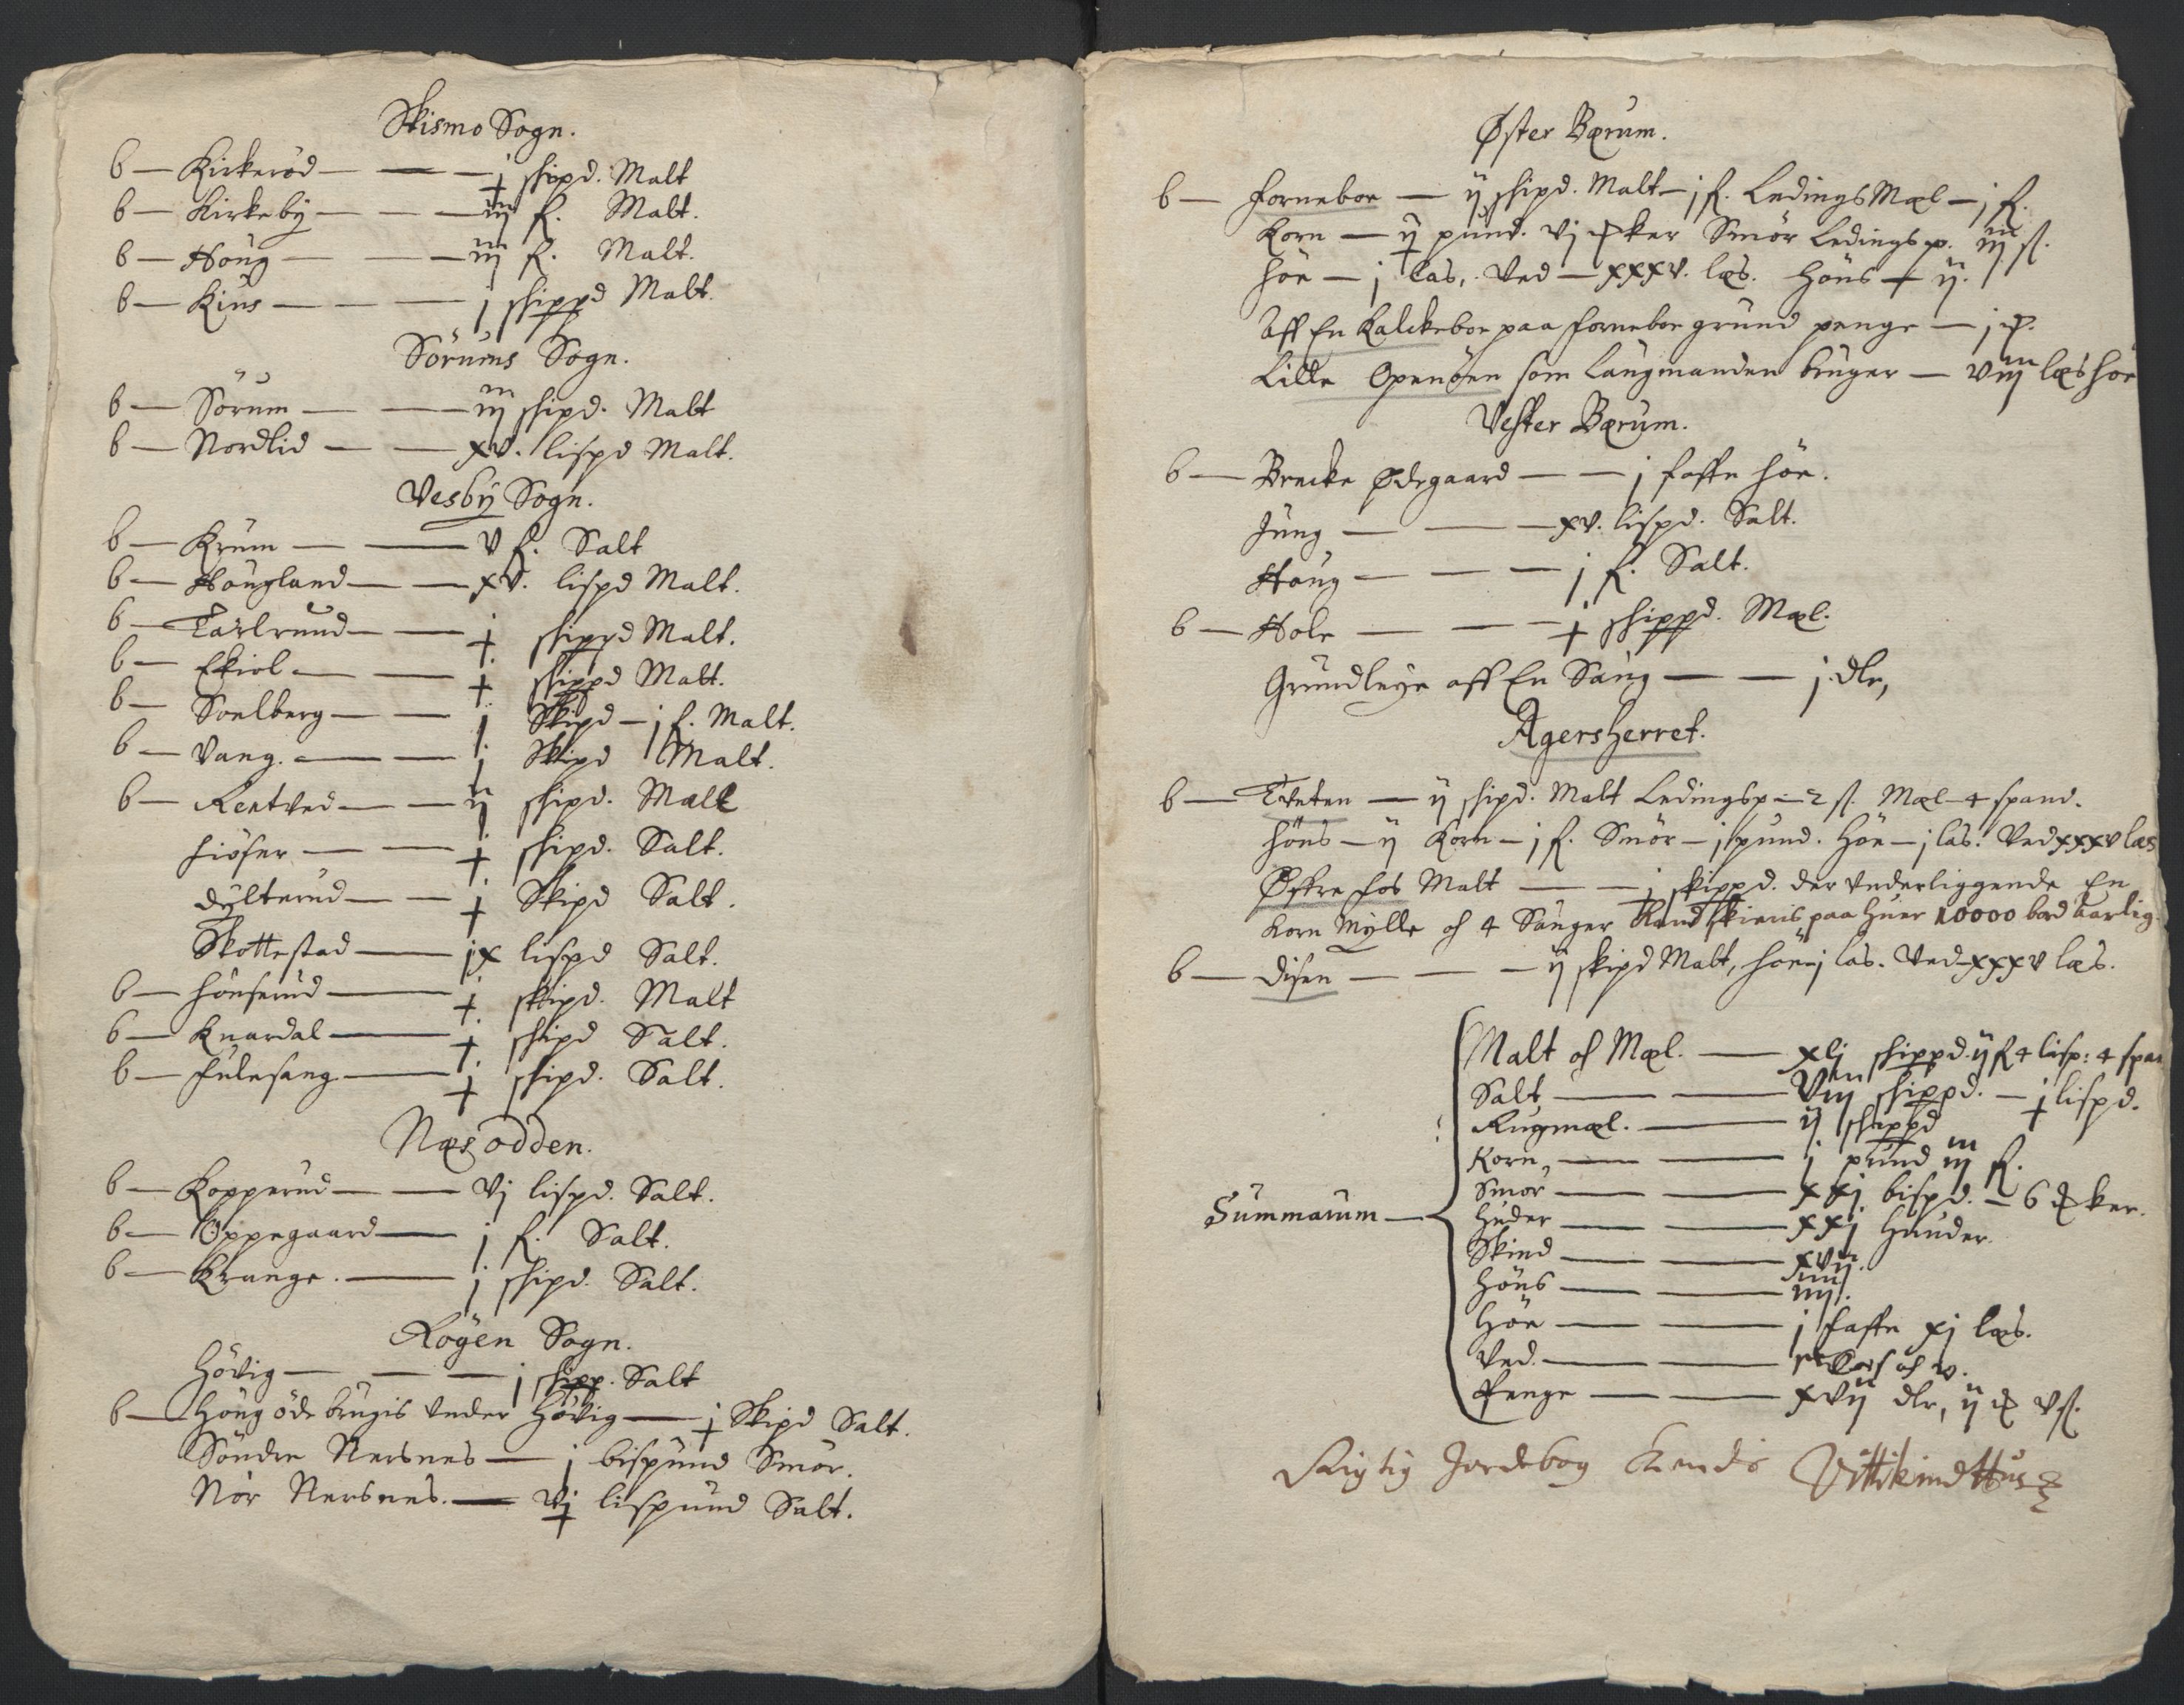 Skismo Sogn.
b — Kirkerød — — — j shipd. Malt
b — Kirkeby — — — iij f. Malt.
b — Houg — — iij f. Malt.
b — Kius — — — j shippd Malt.
Sørums Sogn.
b — Sørum — — iij shipd. Malt
b — Nordlid — — xv. lispd Malt.
Vesby Sogn.
b — Krum — — v f. Salt
b — Hougland — — xv. lispd Malt.
b — Tarlrund — — j shippd Malt.
b — Ekiol — — j shippd Malt.
b — Soelberg — — j Skipd — j f. Malt.
b — Vang. — — j Skipd Malt.
b — Rentved — — ij shipd. Malt
hiøfer — — j shipd. Salt.
dylterud — — j Skipd Salt.
Skottestad — jx lispd Salt.
b — hønserud — j skipd. Malt
b — Knardal — j shipd Salt.
b — fulesang — j shipd. Salt.
Næsodden.
b — Kopperud — — vj lispd. Salt.
b — Oppegaard — j f. Salt.
b — Krange. — j shipd. Salt.
Røgen Sogn.
Høvig — — — j shipp. Salt
b — Houg øde brugis under Høvig — j Skipd Salt.
Søndre Nersnes — j bispund Smør.
Nør Nersnes. — vj lispund Salt.
Øster Bærum.
b — forneboe — ij shipd. Malt — j f. Ledings Mæl — j f.
Korn — ij pund. vj ker Smør Ledingsp. iij s.
høe — j las, Ved — xxxv. læs. Høns — ij.
Aff En Kalckeboe paa forneboe grund penge — j
Lille Openøen som Laugmanden bruger — viij læs høe
Vester Bærum.
b — Brecke Ødegaard — — j faffn høe.
Jung — — xv. lispd. Salt.
Houg — — — j f. Salt.
b — Hole — — j shippd. Mæl.
Grundleye aff En Saug — — j dlr,
Agersherret.
b — Tveten — ij shipd. Malt Ledingsp — 2 s. Mæl — 4 spand.
høns — ij Korn — j f. Smør — j pund. Høe — j las. Ved xxxv læs
Øffre fos Malt — — j skippd. der underliggende En
Korn Mylle oc 4 Sauger Rundskieris paa huer 10000 bord aarlig.
b — disen — — — ij skipd Malt, høe — j las. Ved — xxxv læs.
Summarum —
Malt oc Mæl. — xlj shippd. ij f 4 lisp: 4 span
Salt — — viij shippd. — j lispd.
Rugmæl. — ij shippd
Korn, — — j pund iij f.
Smør — — xxj bispd. — 6 ker.
Huder — — xxj Huuder.
Skind — — xvij.
Høns — — iiij.
Høe — — j faffn xj læs.
Ved. — — oc v.
Penge — — xvij dlr, ij v s.
Rigtig Jordebog Kiendis Vittikind Hus